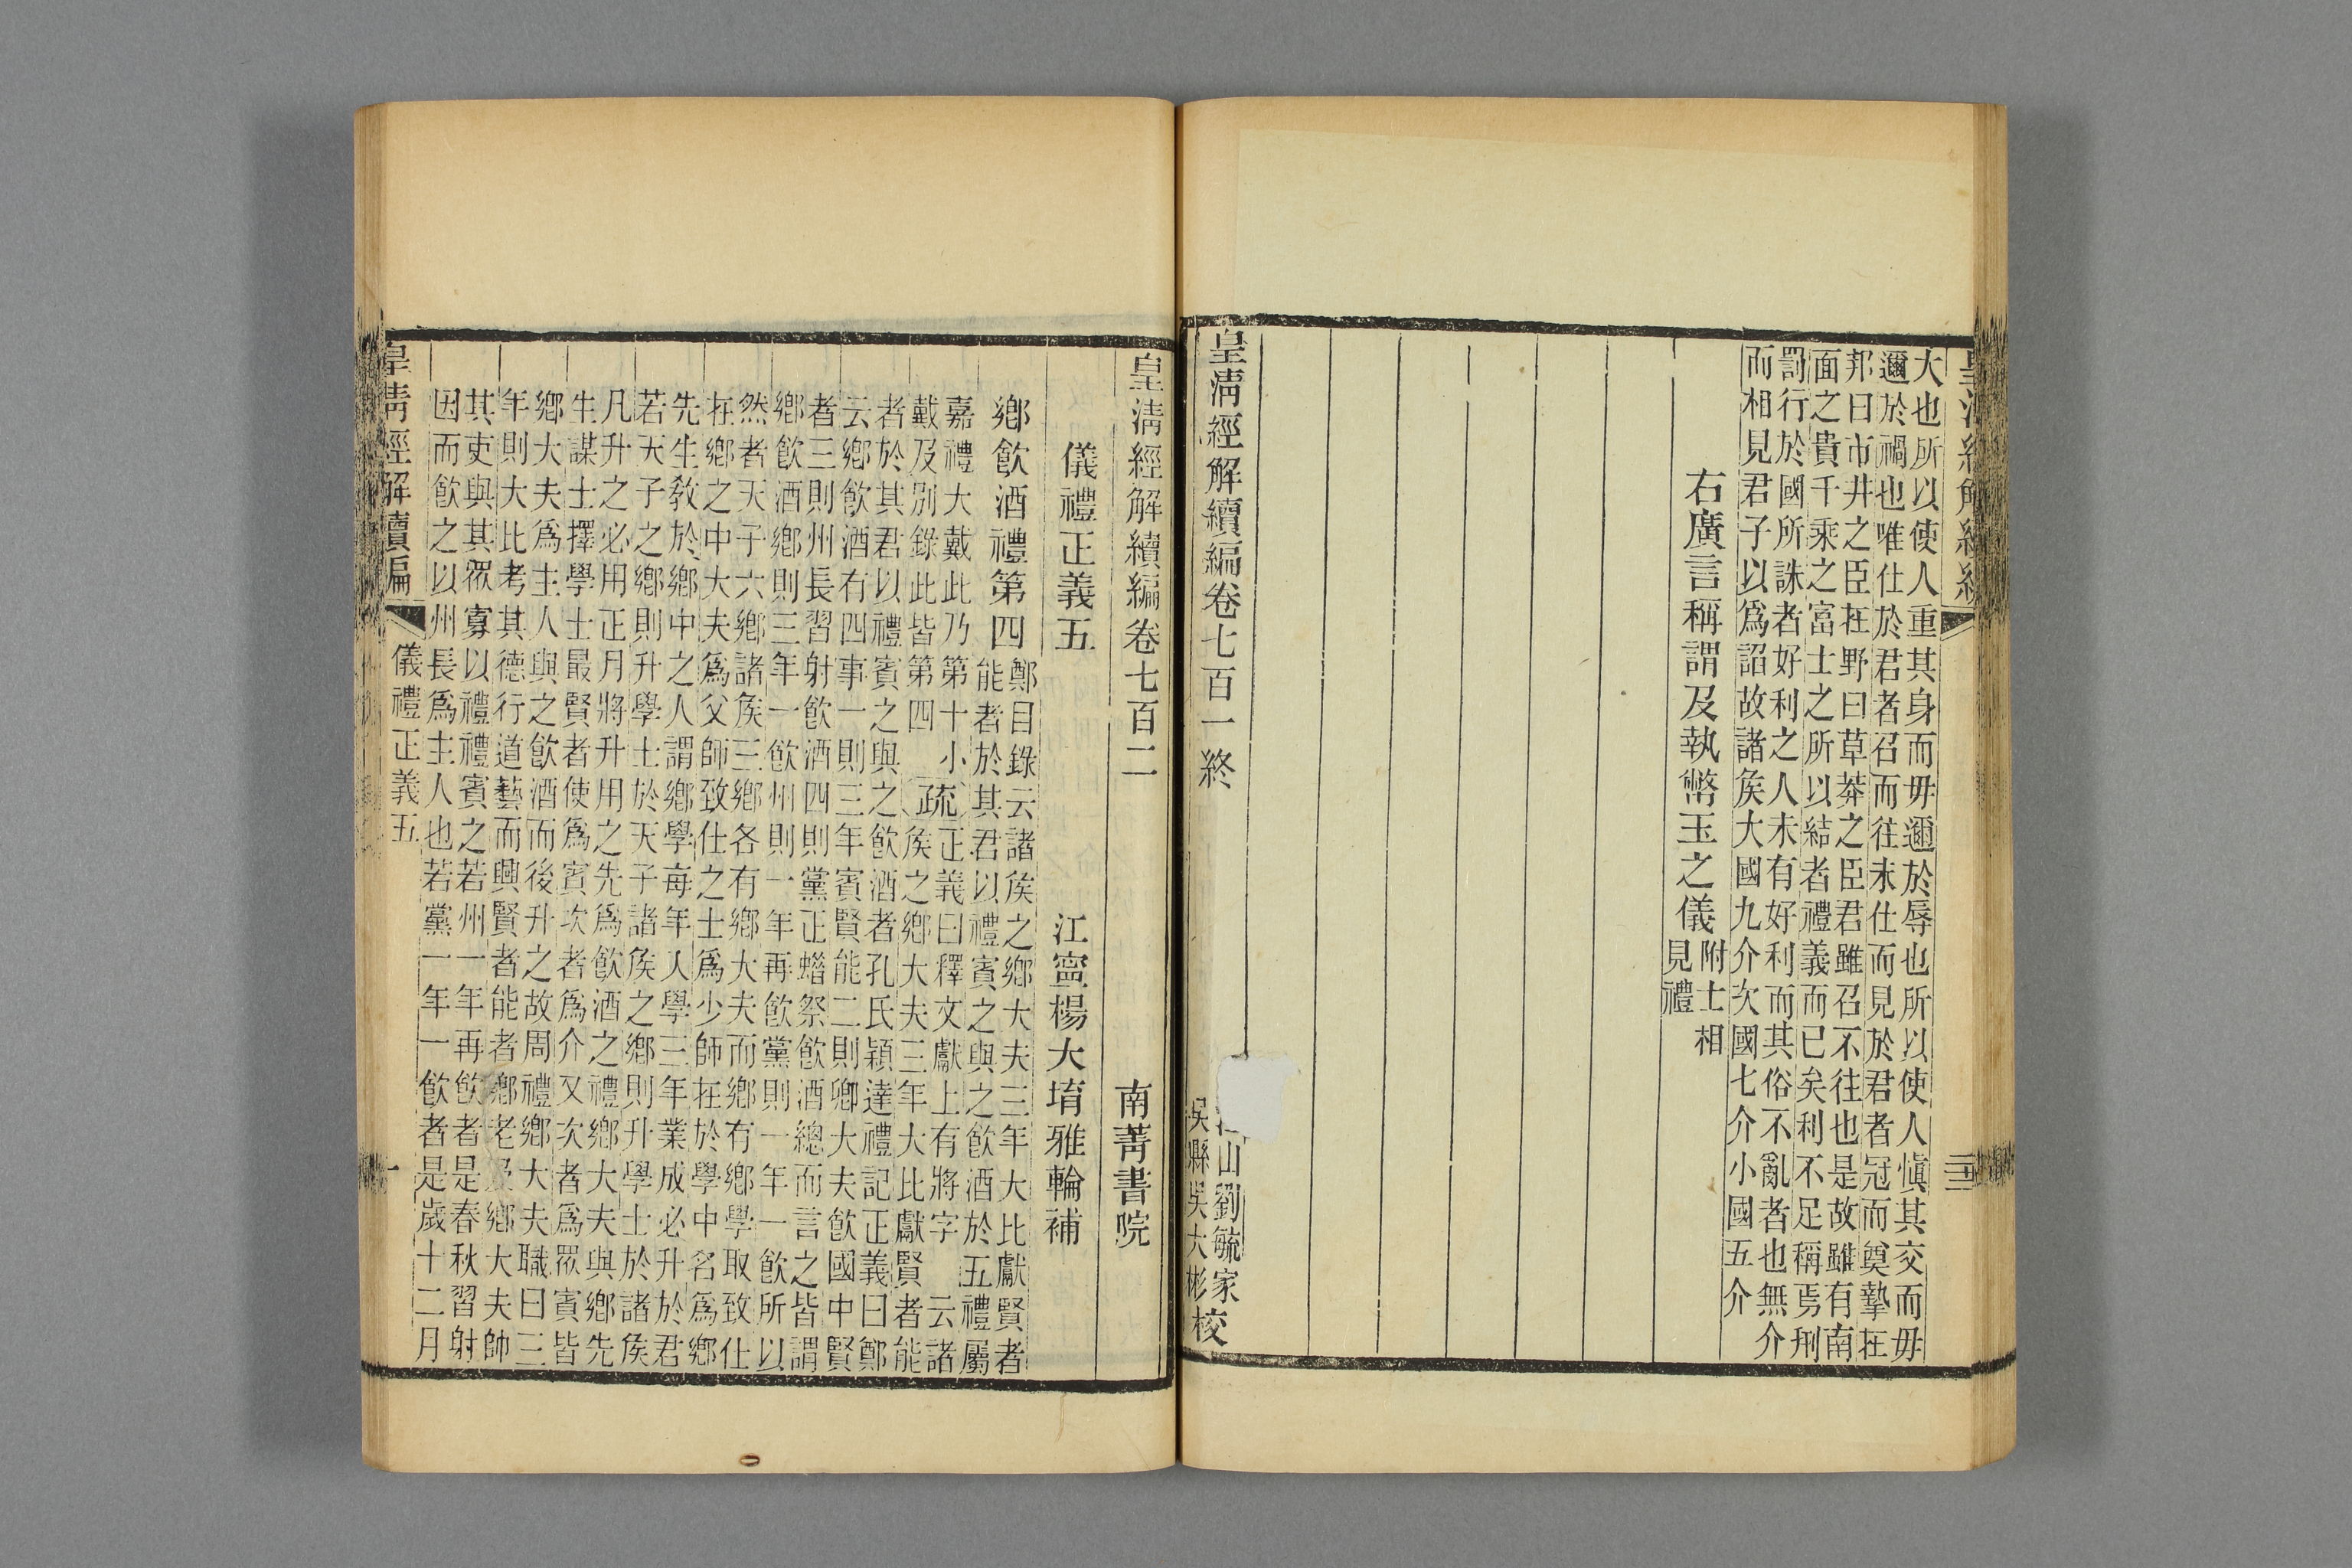 大也所以使人重其身而毋邇於辱也所以使人慎其交而毋
邇於禍也唯仕於君者召而往未仕而見於君者冠而奠摯在
邦曰市井之臣在野曰草莽之臣君雖召不往也是故雖有南
面之貴千乘之富士之所以結者禮義而已矣利不足稱焉刑
罰行於國所誅者好利之人未有好利而其俗不亂者也無介
而相見君子以爲諂故諸矦大國九介次國七介小國五介
右廣言稱謂及執幣玉之儀
附士相
見禮
皇清經解續編卷七百一終
山劉毓家
吳縣吳大彬
校
皇清經解續編卷七百二
南菁書院
儀禮正義五
江寧楊大堉雅輪補
鄉飲酒禮第四
鄭目錄云諸矦之鄉大夫三年大比獻賢者
能者於其君以禮賓之與之飲酒於五禮屬
嘉禮大戴此乃第十小
戴及別錄此皆第四
疏
正義曰釋文獻上有將字 云諸
矦之鄉大夫三年大比獻賢者能
者於其君以禮賓之與之飲酒者孔氏穎達禮記正義曰鄭
云鄉飲酒有四事一則三年賓賢能二則卿大夫飲國中賢
者三則州長習射飲酒四則黨正蜡祭飲酒總而言之皆謂
鄉飲酒鄉則三年一飲州則一年再飲黨則一年一飲所以
然者天子六鄉諸矦三鄉各有鄉大夫而鄉有鄉學取致仕
在鄉之中大夫爲父師致仕之士爲少師在於學中名爲鄉
先生教於鄉中之人謂鄉學每年人學三年業成必升於君
若天子之鄉則升學士於天子諸矦之鄉則升學士於諸矦
凡升之必用正月將升用之先爲飲酒之禮鄉大夫與鄉先
生謀士擇學士最賢者使爲賓次者爲介又次者爲眾賓皆
鄉大夫爲主人與之飲酒而後升之故周禮鄉大夫職曰三
年則大比考其德行道藝而興賢者能者鄉老及鄉大夫帥
其吏與其眾寡以禮禮賓之若州一年再飲者是春秋習射
因而飲之以州長爲主人也若黨一年一飲者是歲十二月
皇清經解續編
儀禮正義五
一